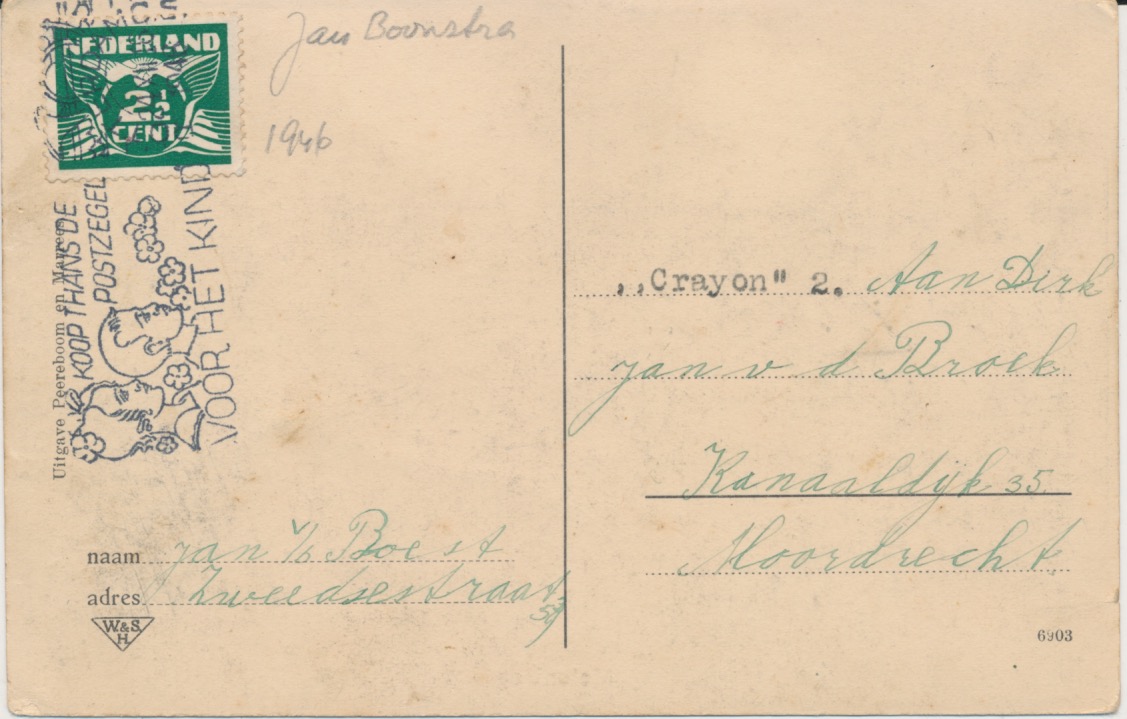 NEDERLAND
2½
CENT
Jan Boonstra
1946
KOOP THANS DE
POSTZEGEL
VOOR HET KIND
Uitgave Peereboom en
naam jan v/d Boest
adres Zweedsestraat
59
W.&S.
H.
„Crayon" 2. Aan Dirk
jan v d Broek
Kanaaldijk 35
Moordrecht
6903